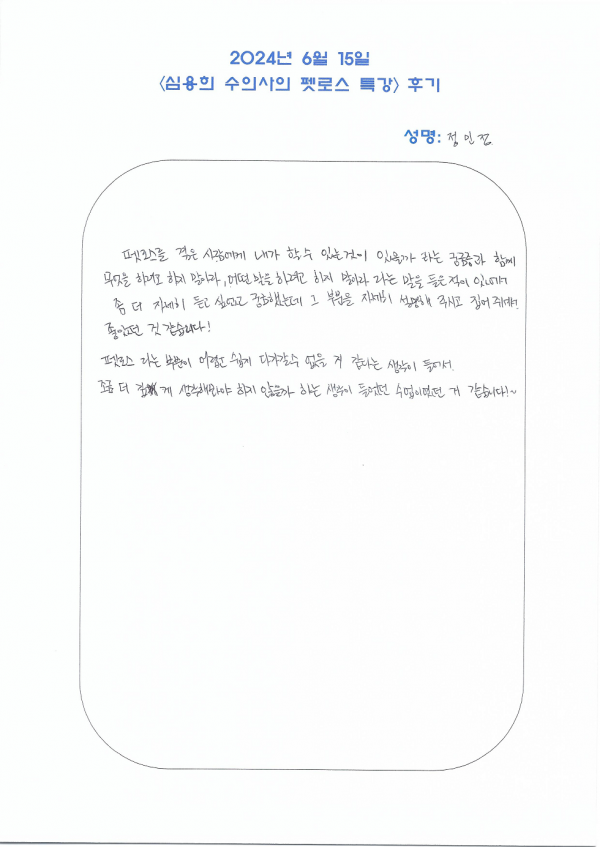 2024년 6월 15일
<심용희 수의사의 펫로스 특강> 후기
성명: 정인진
펫로스를 겪은 사람에게 내가 할 수 있는것이 있을까 라는 궁금증과 함께
무엇을 하려고 하지 말아라, 어떤 말을 하려고 하지 말아라 라는 말을 들은적이 있는데
좀 더 자세히 듣고 싶었고 궁금했는데 그 부분을 자세히 설명해 주시고 짚어 주셔서
좋았던 것 같습니다!
펫로스 라는 부분이 어렵고 쉽게 다가갈수 없을 거 같다는 생각이 들어서
조금 더 깊게 생각해봐야 하지 않을까 하는 생각이 들었던 수업이었던 거 같습니다!~